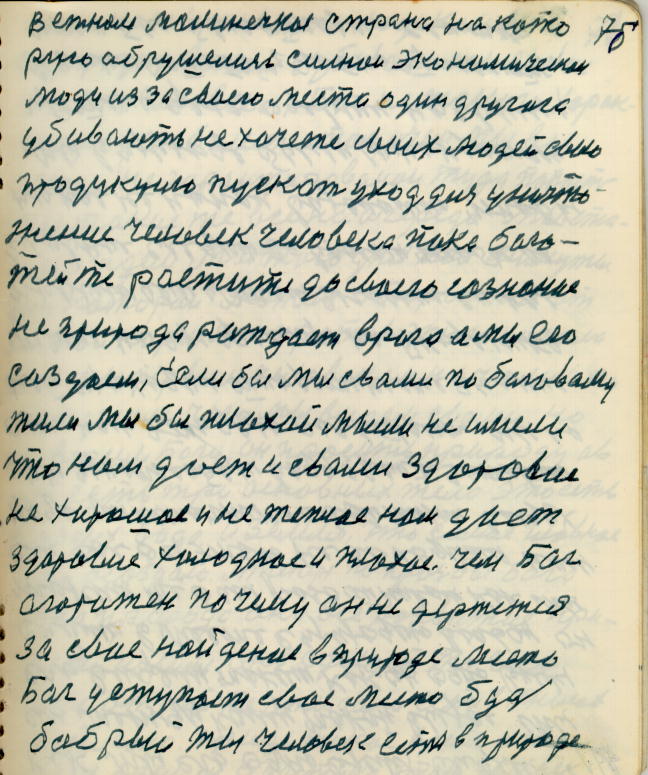 ветном малинечкая страна на кото 75
руго абрушелися силной экономической
люди из за своего места один другога
убивають не хочете своих людей свою
продукцию пускат уход для уничто-
жение человек человека пока бога-
тейте растите до своего сознание
не природа рождает врага а мы его
создаем, Если бы мы свами по баговаму
жили мы бы плохой мысли не имели
что нам дает и свами здоровие
не харошое и не теплое нам дает
здоровие холодное и плохое. чем Бог
огорожен почему он не держется
за свое найденое в природе место
Бог уступает свое место буд
бобрый ты человек есть в природе